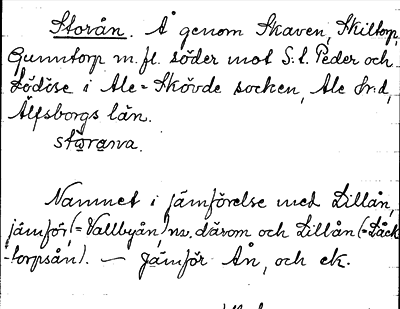 Storån. Å genom Skaven, Skiltorp,
Gunntorp m. fl. söder mot S:t. Peder och
Lödöse i Ale=Skövde socken, Ale hrd,
Älfsborgs län.
stōrana.
Namnet i jämförelse med Lillån,
jämför (=Vallbyån) nv. därom och Lillån (=Bäck
-torpsån). — Jämför Ån, och ek.